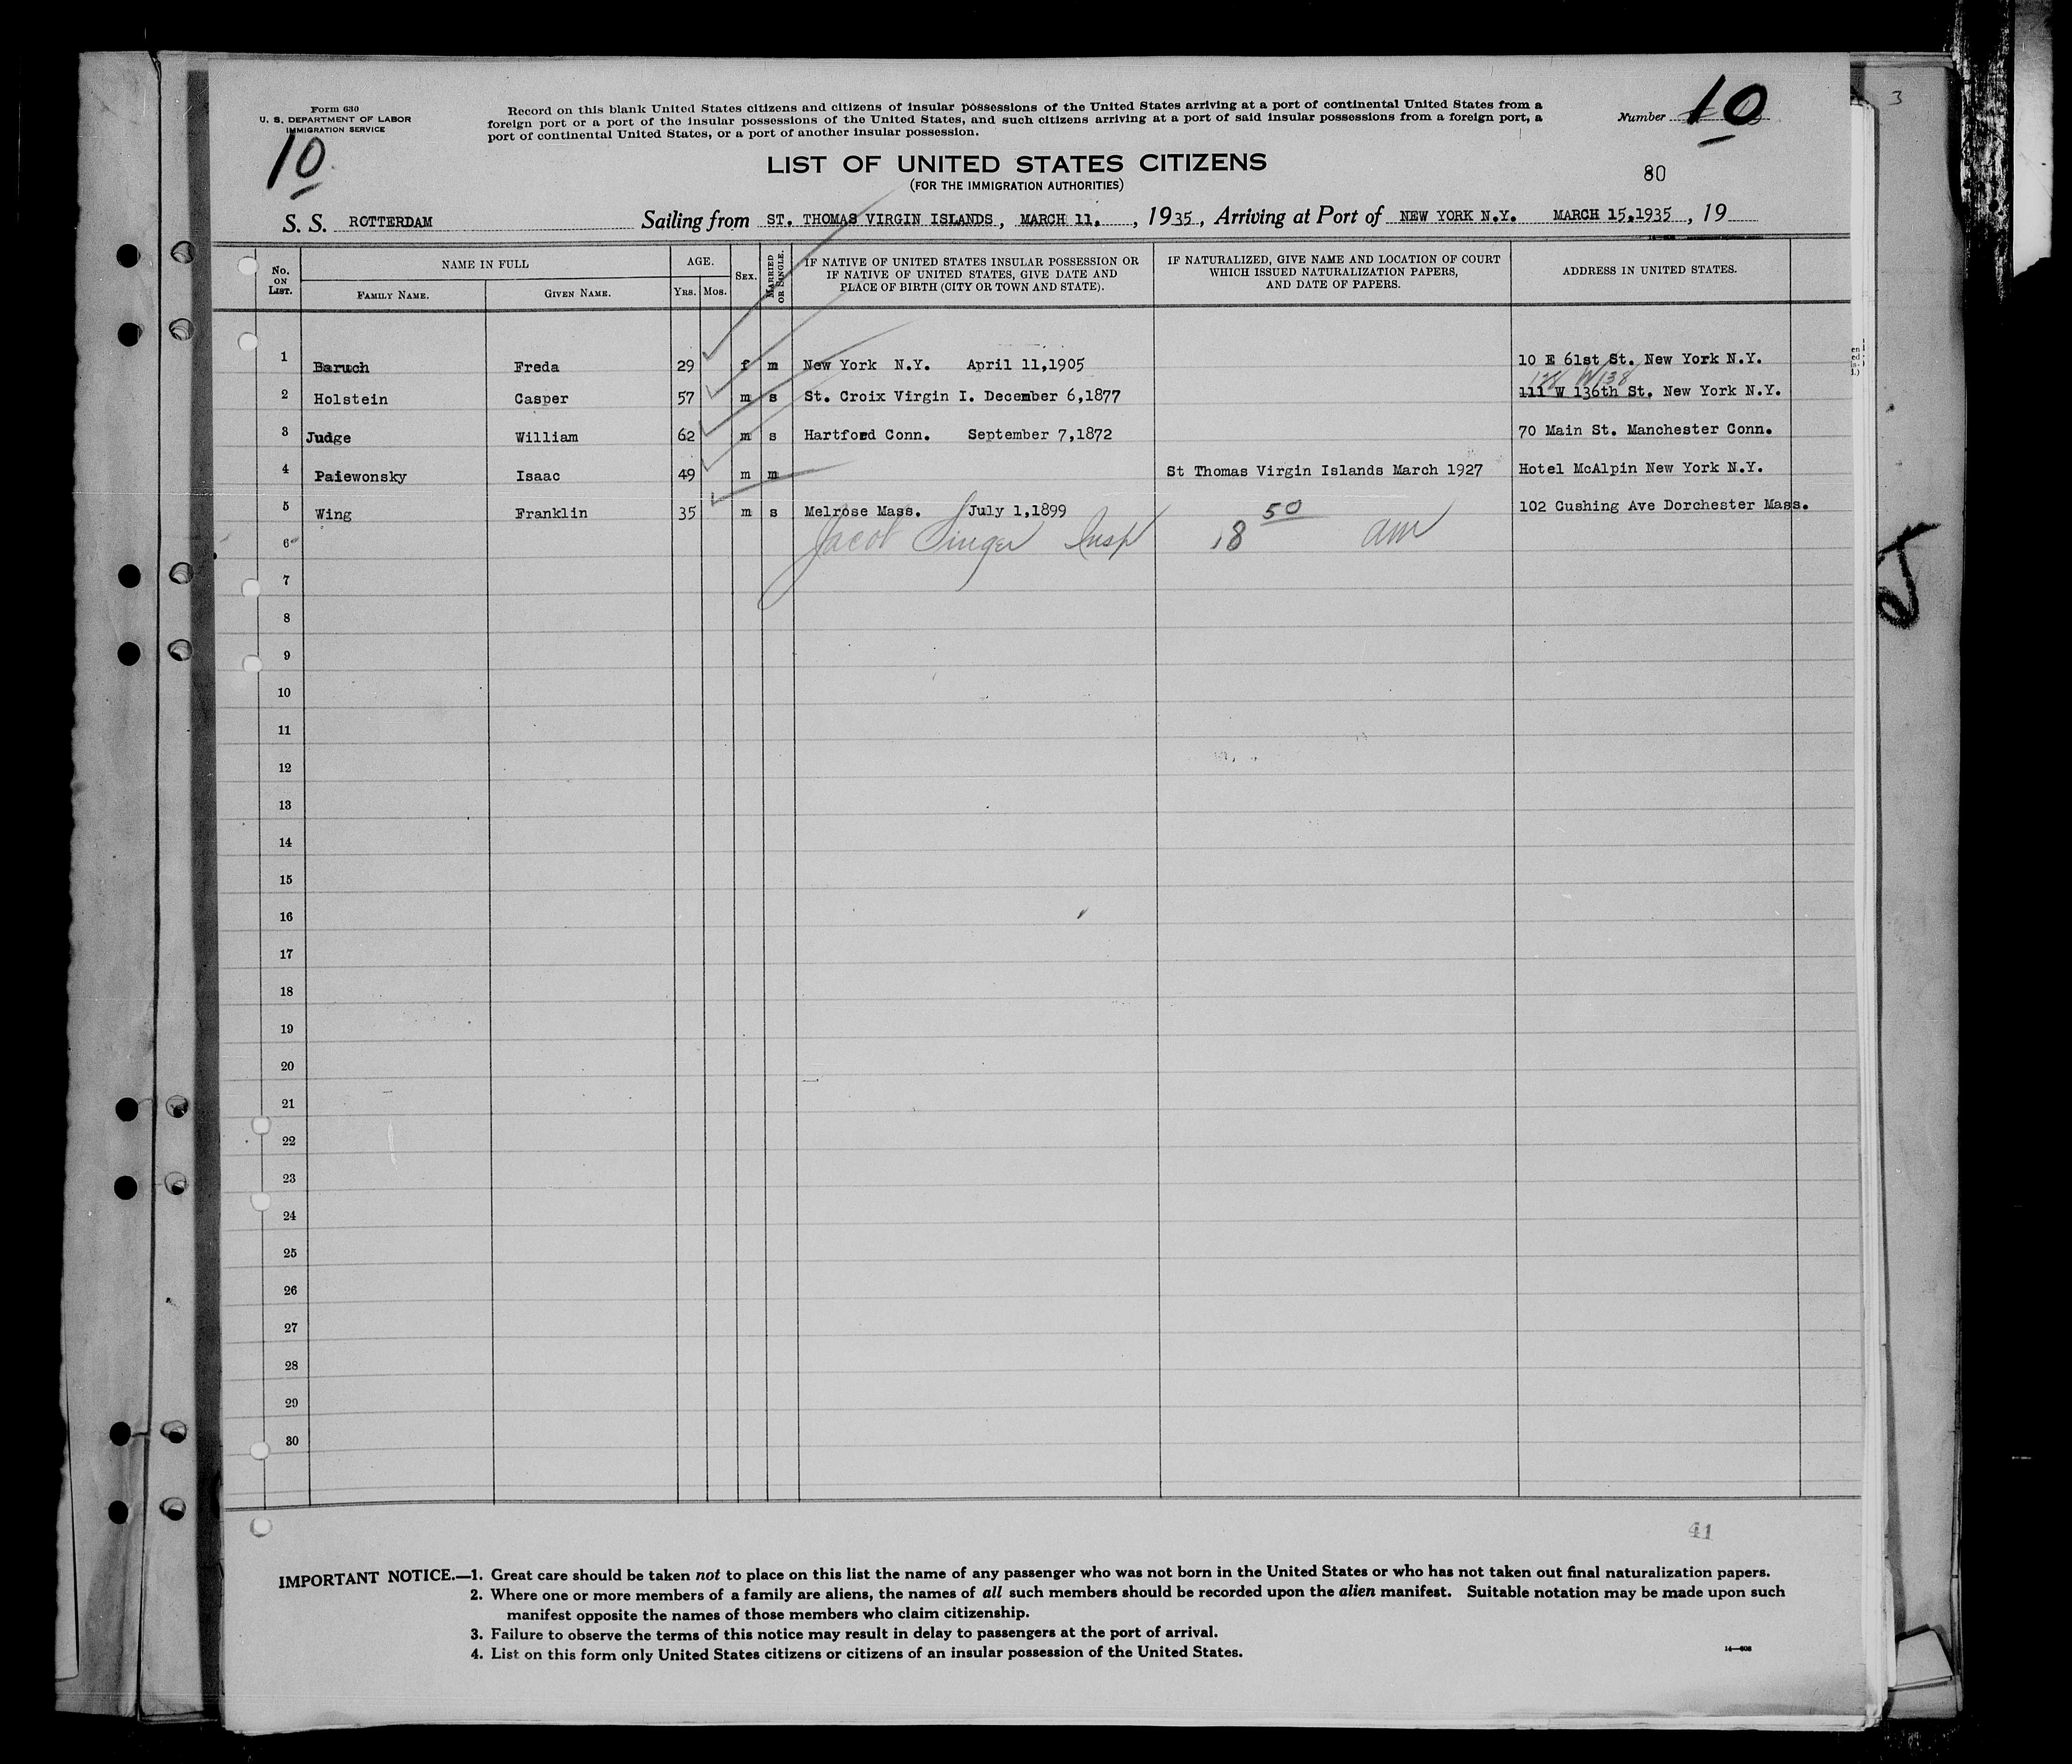 Form 630
U. S. DEPARTMENT OF LABOR
IMMIGRATION SERVICE
10
Record on this blank United States citizens and citizens of insular possessions of the United States arriving at a port of continental United States from a
foreign port or a port of the insular possessions of the United States, and such citizens arriving at a port of said insular possessions from a foreign port, a
port of continental United States, or a port of another insular possession.
Number 10
3
LIST OF UNITED STATES CITIZENS
(FOR THE IMMIGRATION AUTHORITIES)
80
S. S. ROTTERDAM Sailing from ST. THOMAS VIRGIN ISLANDS, MARCH 11, , 1935, Arriving at Port of NEW YORK N.Y. MARCH 15,1935, 19
No. ON LIST. NAME IN FULL AGE. SEX. MARRIED OR SINGLE. IF NATIVE OF UNITED STATES INSULAR POSSESSION OR IF NATIVE OF UNITED STATES, GIVE DATE AND PLACE OF BIRTH (CITY OR TOWN AND STATE). IF NATURALIZED, GIVE NAME AND LOCATION OF COURT WHICH ISSUED NATURALIZATION PAPERS, AND DATE OF PAPERS. ADDRESS IN UNITED STATES.
FAMILY NAME. GIVEN NAME. YRS. MOS.
1 Baruch Freda 29 f m New York N.Y. April 11,1905 10 E 61st St. New York N.Y.
128 W 138
2 Holstein Casper 57 m s St. Croix Virgin I. December 6,1877 111 W 136th St. New York N.Y.
3 Judge William 62 m s Hartford Conn. September 7,1872 70 Main St. Manchester Conn.
4 Paiewonsky Isaac 49 m m St Thomas Virgin Islands March 1927 Hotel McAlpin New York N.Y.
5 Wing Franklin 35 m s Melrose Mass. July 1,1899 102 Cushing Ave Dorchester Mass.
6 Jacob Singer Insp 8 50 am
7
8
9
10
11
12
13
14
15
16
17
18
19
20
21
22
23
24
25
26
27
28
29
30
41
IMPORTANT NOTICE.—1. Great care should be taken not to place on this list the name of any passenger who was not born in the United States or who has not taken out final naturalization papers.
2. Where one or more members of a family are aliens, the names of all such members should be recorded upon the alien manifest. Suitable notation may be made upon such
manifest opposite the names of those members who claim citizenship.
3. Failure to observe the terms of this notice may result in delay to passengers at the port of arrival.
4. List on this form only United States citizens or citizens of an insular possession of the United States.
14—608